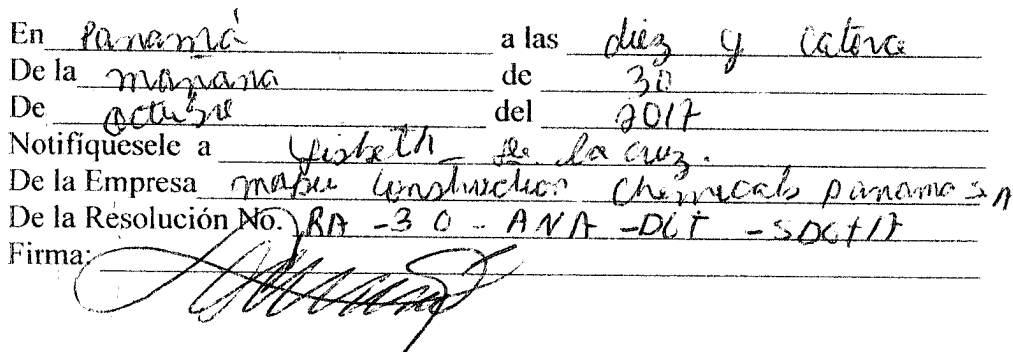 En Panamá a las diez y catorce
De la mañana de 30
De octubre del 2017
Notifíquesele a Yisbeth De la cruz.
De la Empresa mapei Construction Chemicals panama SA
De la Resolución No. RA -30 - ANA -DGT -SDGT17
Firma: